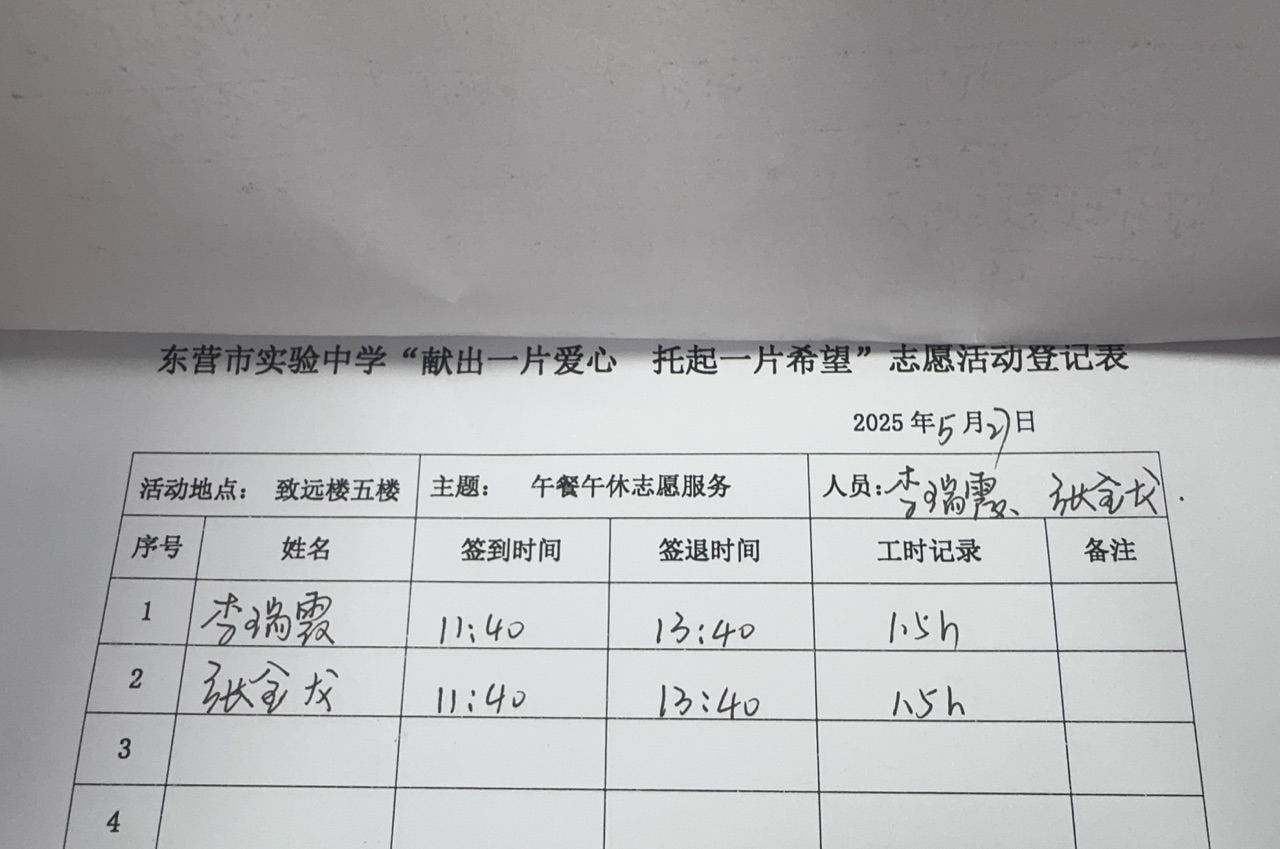 东营市实验中学“献出一片爱心 托起一片希望”志愿活动登记表
2025年5月27日
活动地点： 致远楼五楼 主题： 午餐午休志愿服务 人员：李瑞霞、张金龙.
序号 姓名 签到时间 签退时间 工时记录 备注
1 李瑞霞 11:40 13:40 1.5h
2 张金龙 11:40 13:40 1.5h
3
4